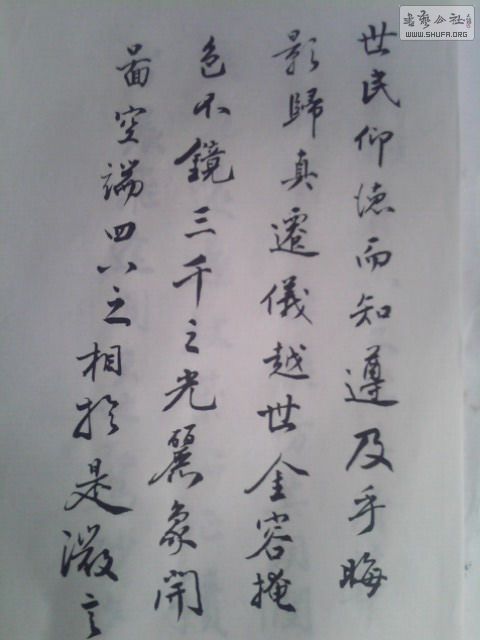 世民仰德而知遵及乎晦
影歸真遷儀越世金容掩
色不鏡三千之光麗象開
啚空端四八之相於是微言
書艺公社
WWW.SHUFA.ORG